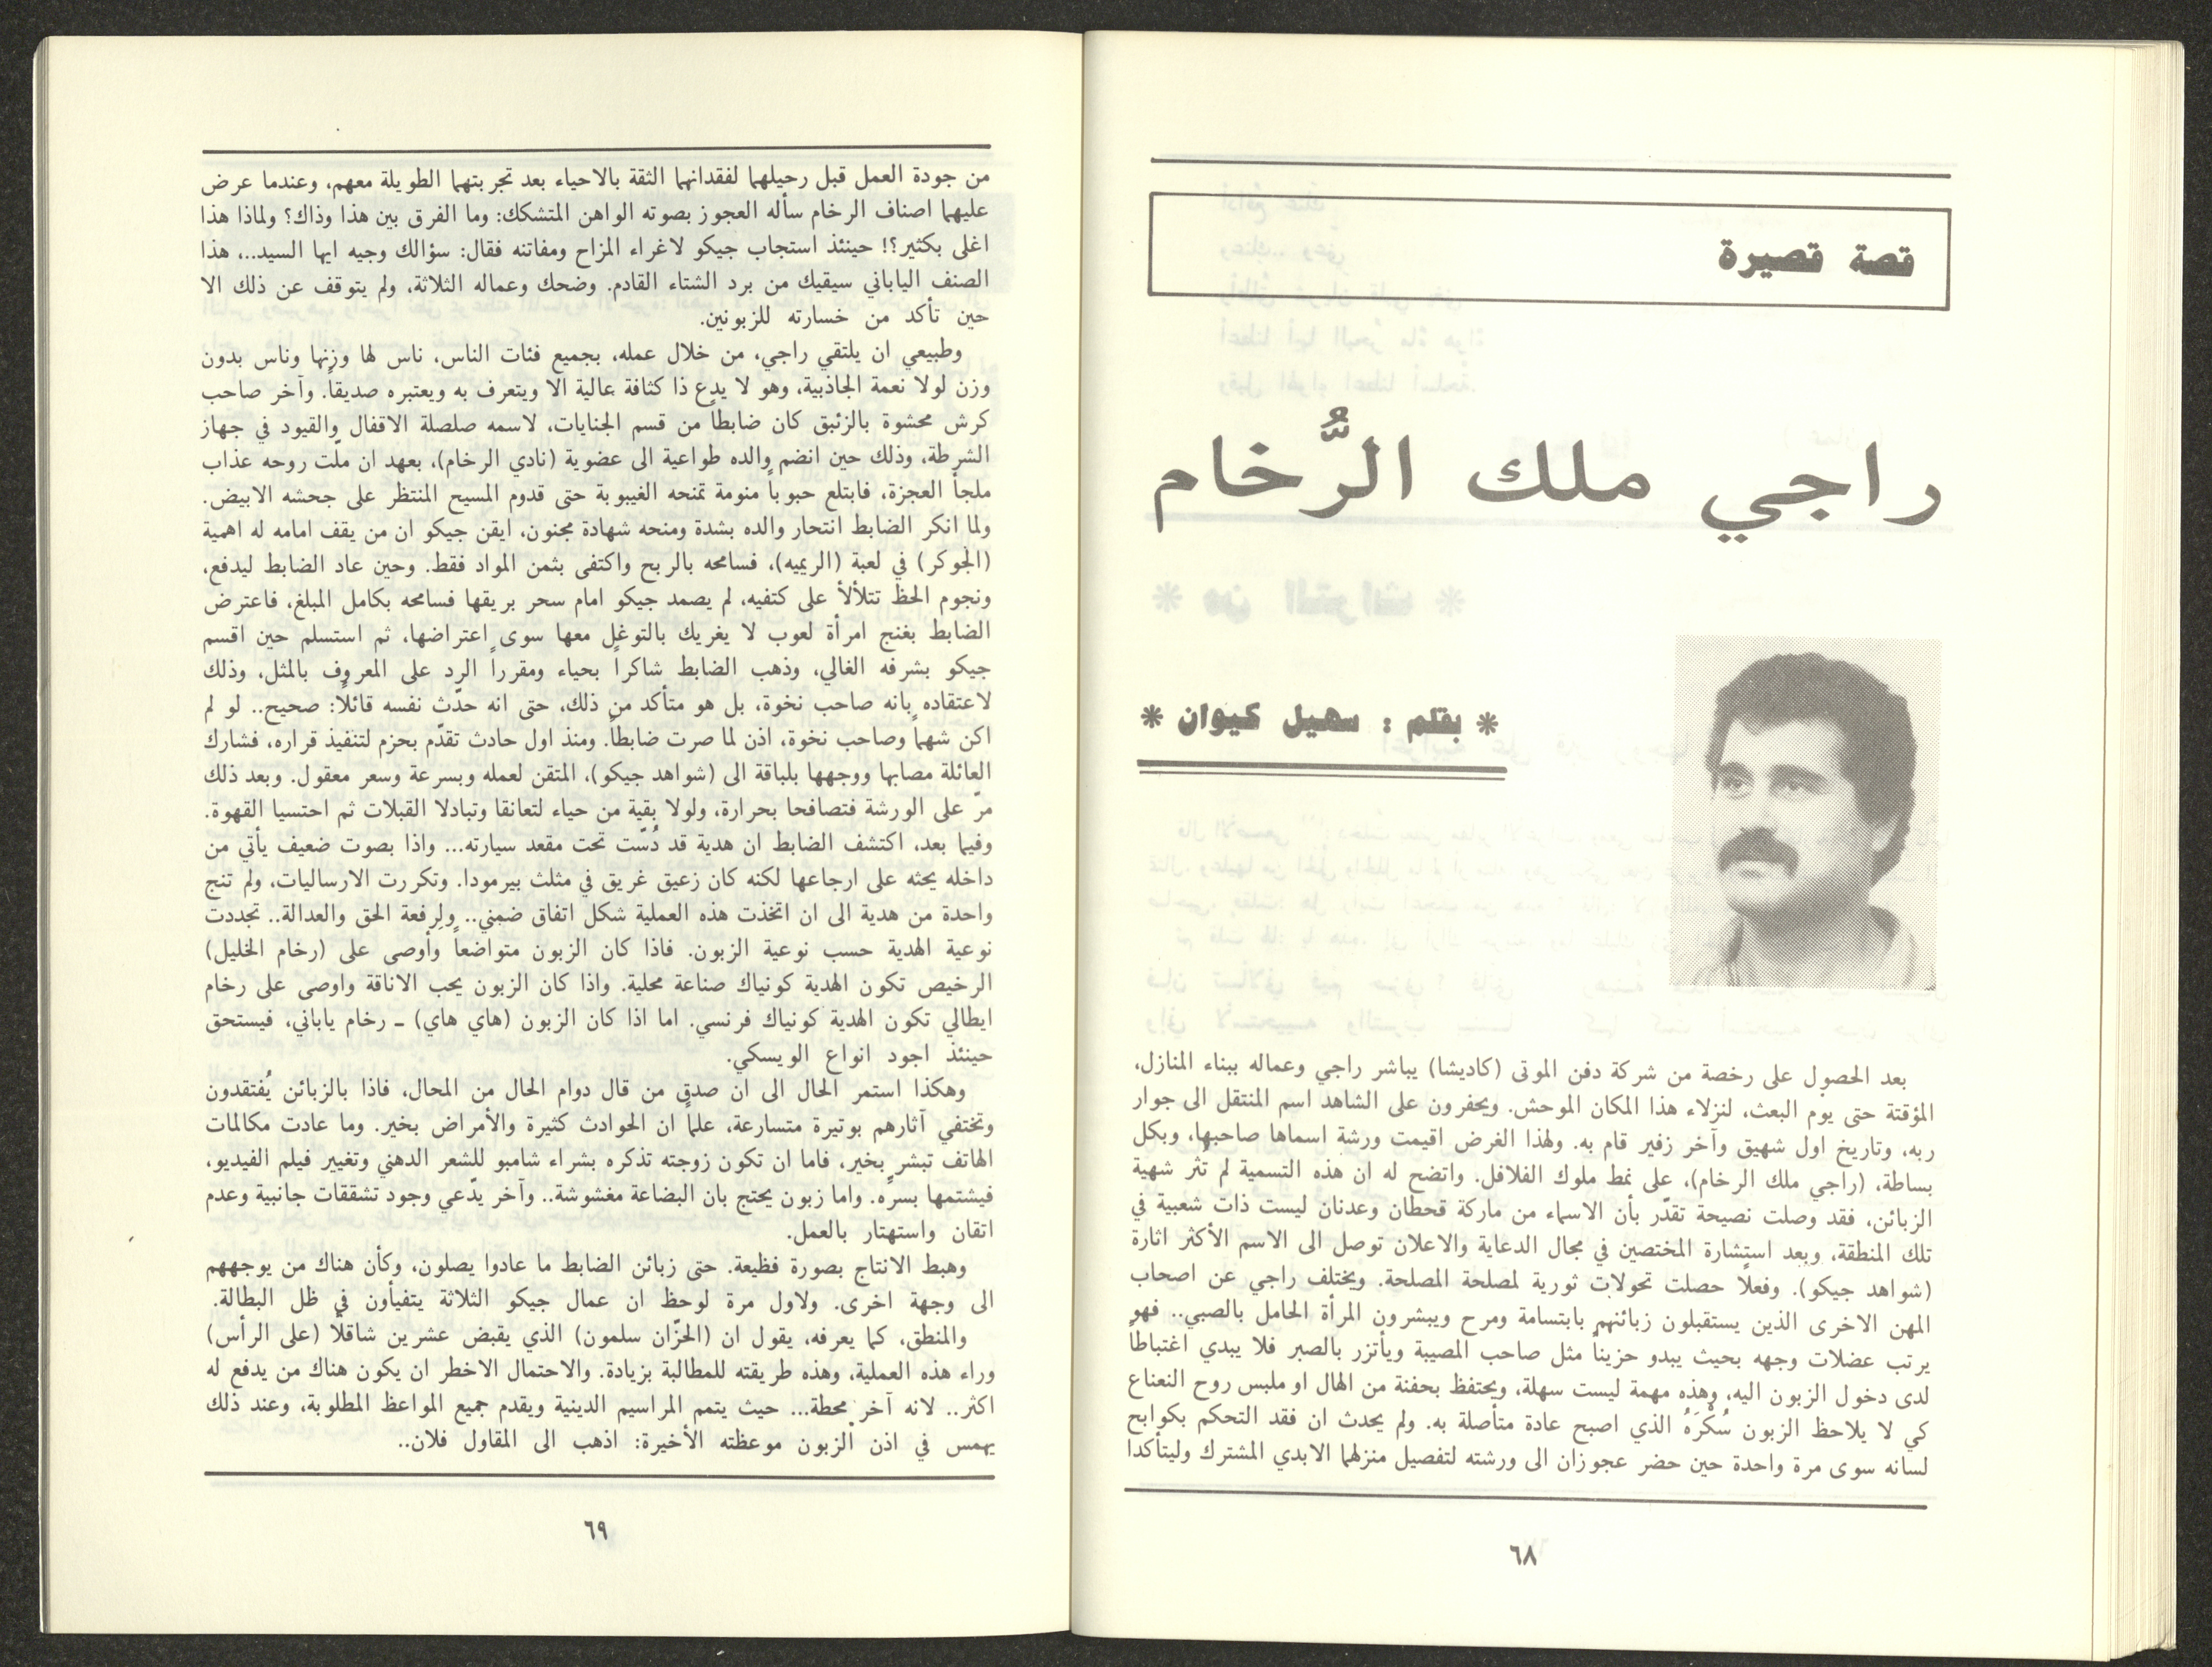 قصة قصيرة
راجي ملك الرُّخام
* بقلم : سهيل كيوان *
بعد الحصول على رخصة من شركة دفن الموتى (كاديشا) يباشر راجي وعماله ببناء المنازل،
المؤقتة حتى يوم البعث، لنزلاء هذا المكان الموحش. ويحفرون على الشاهد اسم المنتقل الى جوار
ربه، وتاريخ اول شهيق وآخر زفير قام به. ولهذا الغرض اقيمت ورشة اسماها صاحبها، وبكل
بساطة، (راجي ملك الرخام)، على نمط ملوك الفلافل. واتضح له ان هذه التسمية لم تُثر شهية
الزبائن، فقد وصلت نصيحة تقدّر بأن الاسماء من ماركة قحطان وعدنان ليست ذات شعبية في
تلك المنطقة، وبعد استشارة المختصين في مجال الدعاية والاعلان توصل الى الاسم الأكثر اثارة
(شواهد جيكو). وفعلاً حصلت تحولات ثورية لمصلحة المصلحة. ويختلف راجي عن اصحاب
المهن الاخرى الذين يستقبلون زبائنهم بابتسامة ومرح ويبشرون المرأة الحامل بالصبي.. فهو
يرتب عضلات وجهه بحيث يبدو حزيناً مثل صاحب المصيبة ويأتزر بالصبر فلا يبدي اغتباطاً
لدى دخول الزبون اليه، وهذه مهمة ليست سهلة، ويحتفظ بحفنة من الهال او ملبس روح النعناع
كي لا يلاحظ الزبون سُكْرَهُ الذي اصبح عادة متأصلة به. ولم يحدث ان فقد التحكم بكوابح
لسانه سوى مرة واحدة حين حضر عجوزان الى ورشته لتفصيل منزلهما الابدي المشترك وليتأكدا
٦٨
من جودة العمل قبل رحيلهما لفقدانهما الثقة بالاحياء بعد تجربتهما الطويلة معهم، وعندما عرض
عليهما اصناف الرخام سأله العجوز بصوته الواهن المتشكك: وما الفرق بين هذا وذاك؟ ولماذا هذا
اغلى بكثير؟! حينئذ استجاب جيكو لاغراء المزاح ومفاتنه فقال: سؤالك وجيه ايها السيد..، هذا
الصنف الياباني سيقيك من برد الشتاء القادم. وضحك وعماله الثلاثة، ولم يتوقف عن ذلك الا
حين تأكد من خسارته للزبونين.
وطبيعي ان يلتقي راجي، من خلال عمله، بجميع فئات الناس، ناس لها وزنها وناس بدون
وزن لولا نعمة الجاذبية، وهو لا يدع ذا كثافة عالية الا ويتعرف به ويعتبره صديقاً. وآخر صاحب
كرش محشوة بالزئبق كان ضابطاً من قسم الجنايات، لاسمه صلصلة الاقفال والقيود في جهاز
الشرطة، وذلك حين انضم والده طواعية الى عضوية (نادي الرخام)، بعهد ان ملّت روحه عذاب
ملجأ العجزة، فابتلع حبوباً منومة تمنحه الغيبوبة حتى قدوم المسيح المنتظر على جحشه الابيض.
ولما انكر الضابط انتحار والده بشدة ومنحه شهادة مجنون، ايقن جيكو ان من يقف امامه له اهمية
(الجوكر) في لعبة (الريميه)، فسامحه بالربح واكتفى بثمن المواد فقط. وحين عاد الضابط ليدفع،
ونجوم الحظ تتلألأ على كتفيه، لم يصمد جيكو امام سحر بريقها فسامحه بكامل المبلغ، فاعترض
الضابط بغنج امرأة لعوب لا يغريك بالتوغل معها سوى اعتراضها، ثم استسلم حين اقسم
جيكو بشرفه الغالي، وذهب الضابط شاكراً بحياء ومقرراً الرد على المعروف بالمثل، وذلك
لاعتقاده بانه صاحب نخوة، بل هو متأكد من ذلك، حتى انه حدّث نفسه قائلاً: صحيح.. لو لم
اكن شهماً وصاحب نخوة، اذن لما صرت ضابطاً. ومنذ اول حادث تقدّم بحزم لتنفيذ قراره، فشارك
العائلة مصابها ووجهها بلباقة الى (شواهد جيكو)، المتقن لعمله وبسرعة وسعر معقول. وبعد ذلك
مرّ على الورشة فتصافحا بحرارة، ولولا بقية من حياء لتعانقا وتبادلا القبلات ثم احتسيا القهوة.
وفيما بعد، اكتشف الضابط ان هدية قد دُسّت تحت مقعد سيارته... واذا بصوت ضعيف يأتي من
داخله يحثه على ارجاعها لكنه كان زعيق غريق في مثلث بيرمودا. وتكررت الارساليات، ولم تنج
واحدة من هدية الى ان اتخذت هذه العملية شكل اتفاق ضمني.. ولِرفعة الحق والعدالة.. تجددت
نوعية الهدية حسب نوعية الزبون. فاذا كان الزبون متواضعاً وأوصى على (رخام الخليل)
الرخيص تكون الهدية كونياك صناعة محلية. واذا كان الزبون يحب الاناقة واوصى على رخام
ايطالي تكون الهدية كونياك فرنسي. اما اذا كان الزبون (هاي هاي) ـ رخام ياباني، فيستحق
حينئذ اجود انواع الويسكي.
وهكذا استمر الحال الى ان صدق من قال دوام الحال من المحال، فاذا بالزبائن يُفتقدون
وتختفي آثارهم بوتيرة متسارعة، علماً ان الحوادث كثيرة والأمراض بخير. وما عادت مكالمات
الهاتف تبشر بخير، فاما ان تكون زوجته تذكره بشراء شامبو للشعر الدهني وتغيير فيلم الفيديو،
فيشتمها بسرّه. واما زبون يحتج بان البضاعة مغشوشة.. وآخر يدّعي وجود تشققات جانبية وعدم
اتقان واستهتار بالعمل.
وهبط الانتاج بصورة فظيعة. حتى زبائن الضابط ما عادوا يصلون، وكأن هناك من يوجههم
الى وجهة اخرى. ولاول مرة لوحظ ان عمال جيكو الثلاثة يتفيأون في ظل البطالة.
والمنطق، كما يعرفه، يقول ان (الحزّان سلمون) الذي يقبض عشرين شاقلاً (على الرأس)
وراء هذه العملية، وهذه طريقته للمطالبة بزيادة. والاحتمال الاخطر ان يكون هناك من يدفع له
اكثر.. لانه آخر محطة... حيث يتمم المراسيم الدينية ويقدم جميع المواعظ المطلوبة، وعند ذلك
يهمس في اذن الزبون موعظته الأخيرة: اذهب الى المقاول فلان..
٦٩